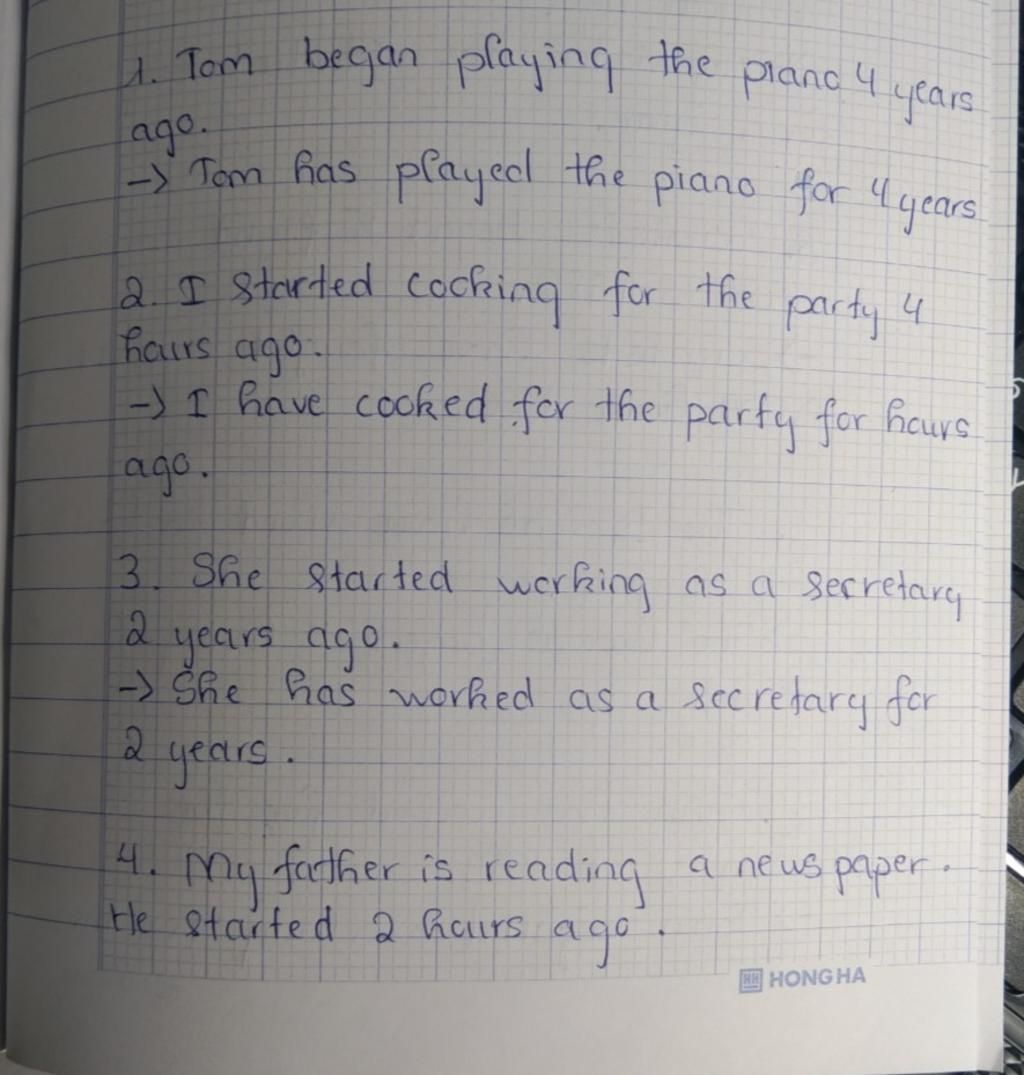 1. Tom began playing the piano 4 years
ago.
-> Tom has played the piano for 4 years
2. I started cooking for the party 4
hours ago.
-> I have cooked for the party for hours
ago.
3. She started working as a secretary
2 years ago.
-> She has worked as a secretary for
2 years.
4. My father is reading a newspaper.
He started 2 hours ago.
HH HONG HA